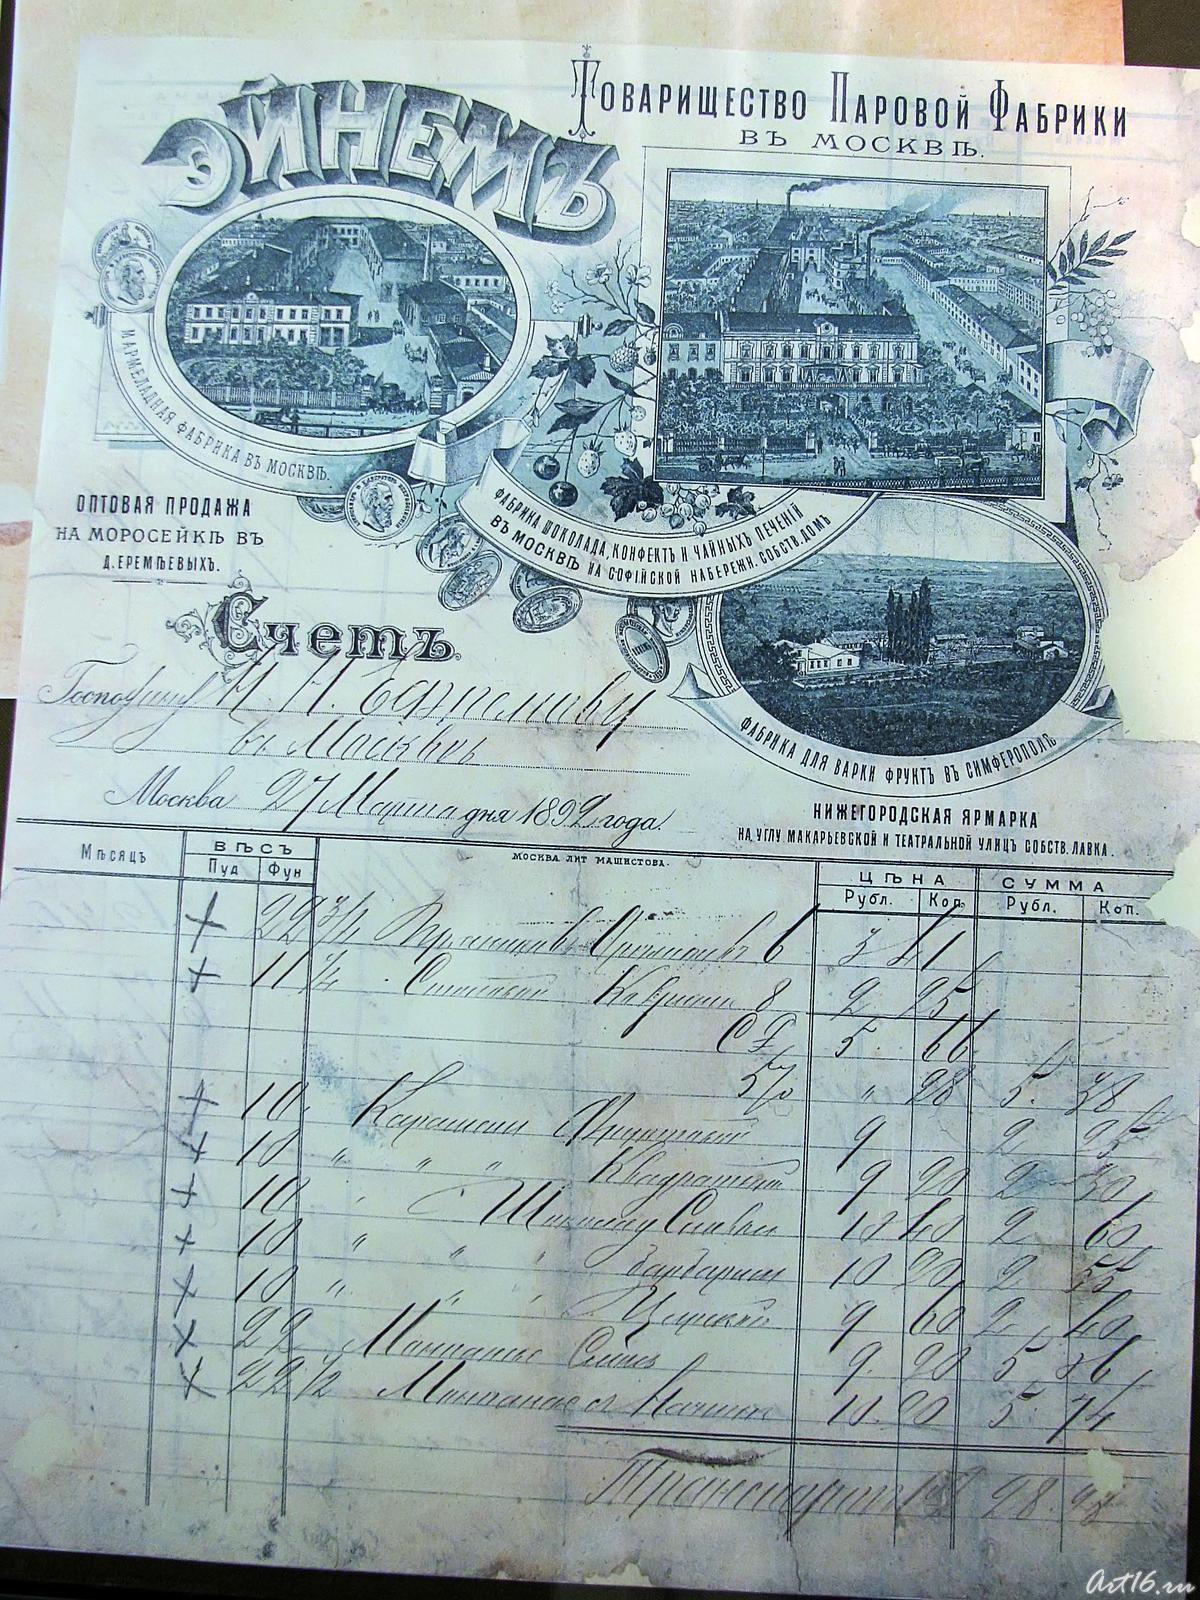 ЭЙНЕМЪ
Товарищество Паровой Фабрики
ВЪ МОСКВѢ.
МАРМЕЛАДНАЯ ФАБРИКА ВЪ МОСКВѢ.
ОПТОВАЯ ПРОДАЖА
НА МОРОСЕЙКѢ ВЪ
Д. ЕРЕМѢЕВЫХЪ.
ФАБРИКА ШОКОЛАДА, КОНФЕКТЪ И ЧАЙНЫХЪ ПЕЧЕНІЙ
ВЪ МОСКВѢ НА СОФІЙСКОЙ НАБЕРЕЖН. СОБСТВ. ДОМЪ
ФАБРИКА ДЛЯ ВАРКИ ФРУКТЪ ВЪ СИМФЕРОПОЛѢ
НИЖЕГОРОДСКАЯ ЯРМАРКА
НА УГЛУ МАКАРЬЕВСКОЙ И ТЕАТРАЛЬНОЙ УЛИЦЪ СОБСТВ. ЛАВКА.
Счетъ.
Господину Н. Н.
въ Москвѣ
Москва 27 Марта дня 1892 года.
МОСКВА ЛИТ МАШИСТОВА.
Мѣсяцъ ВѢСЪ ЦѢНА СУММА
Пуд Фун Рубл. Коп. Рубл. Коп.
+ 22 3/4 6 3 41
+ 11 1/4 8 2 25
5 66
5% " 28 5. 38
+ 10 Карамели Фруктовой 9 2 25
+ 10 " " " Квадратной 9 20 2 30
+ 10 " Шоколаду Сливъ 10 40 2 60
+ 10 " " " Барбарисъ 10 20 2 55
+ 10 " " " Царской 9 60 2 40
+ 22 Монпансье 9. 20 5 06
+ 22 1/2 Монпансье 10. 20 5 74
Транспортъ 28.
Art16.ru